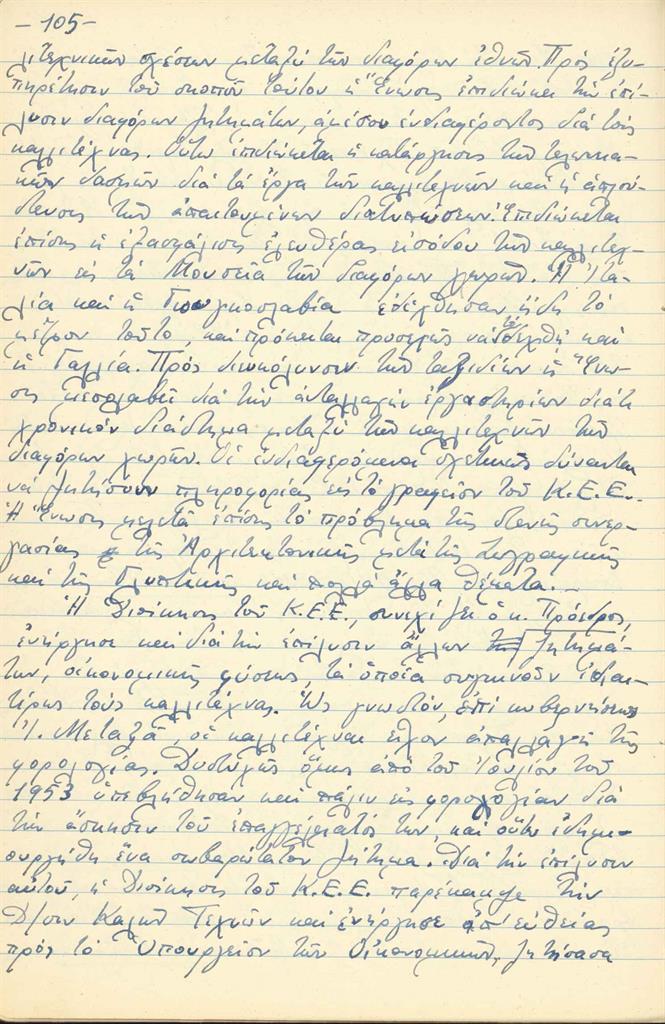 -105-
λιτεχνικῶν σχέσεων μεταξὺ τῶν διαφόρων ἐθνῶν. Πρὸς ἐξυ-
πηρέτησιν τοῦ σκοποῦ τούτου ἡ Ἕνωσις ἐπιδιώκει τὴν ἐπί-
λυσιν διαφόρων ζητημάτων, ἀμέσου ἐνδιαφέροντος διὰ τοὺς
καλλιτέχνας. Οὕτω ἐπιδιώκεται ἡ κατάργησις τῶν τελωνια-
κῶν δασμῶν διὰ τὰ ἔργα τῶν καλλιτεχνῶν καὶ ἡ ἁπλού-
στευσις τῶν ἀπαιτουμένων διατυπώσεων. Ἐπιδιώκεται
ἐπίσης ἡ ἐξασφάλισις ἐλευθέρας εἰσόδου τῶν καλλιτεχ-
νῶν εἰς τὰ Μουσεῖα τῶν διαφόρων χωρῶν. Ἡ Ἰτα-
λία καὶ ἡ Γιουγκοσλαβία ἐδέχθησαν ἤδη τὸ
μέτρον τοῦτο, καὶ πρόκειται προσεχῶς νὰ τὸ δεχθῇ καὶ
ἡ Γαλλία. Πρὸς διευκόλυνσιν τῶν ταξιδίων ἡ Ἕνω-
σις μεσολαβεῖ διὰ τὴν ἀνταλλαγὴν ἐργαστηρίων διά τι
χρονικὸν διάστημα μεταξὺ τῶν καλλιτεχνῶν τῶν
διαφόρων χωρῶν. Οἱ ἐνδιαφερόμενοι σχετικῶς δύνανται
νὰ ζητήσουν πληροφορίας εἰς τὸ γραφεῖον τοῦ Κ.Ε.Ε.
Ἡ Ἕνωσις μελετᾷ ἐπίσης τὸ πρόβλημα τῆς στενῆς συνερ-
γασίας τῆς Ἀρχιτεκτονικῆς μετὰ τῆς Ζωγραφικῆς
καὶ τῆς Γλυπτικῆς καὶ πολλὰ ἄλλα θέματα.—
Ἡ Διοίκησις τοῦ Κ.Ε.Ε., συνεχίζει ὁ κ. Πρόεδρος,
ἐνήργησε καὶ διὰ τὴν ἐπίλυσιν ἄλλων ζητημά-
των, οἰκονομικῆς φύσεως, τὰ ὁποῖα συγκινοῦν ἰδιαι-
τέρως τοὺς καλλιτέχνας. Ὡς γνωστόν, ἐπὶ κυβερνήσεως
Ἰ. Μεταξᾶ, οἱ καλλιτέχναι εἶχον ἀπαλλαγῆ τῆς
φορολογίας. Δυστυχῶς ὅμως ἀπὸ τοῦ Ἰουλίου τοῦ
1953 ὑπεβλήθησαν καὶ πάλιν εἰς φορολογίαν διὰ
τὴν ἄσκησιν τοῦ ἐπαγγέλματός των, καὶ οὕτω ἐδημι-
ουργήθη ἕνα σοβαρώτατον ζήτημα. Διὰ τὴν ἐπίλυσιν
αὐτοῦ, ἡ Διοίκησις τοῦ Κ.Ε.Ε. παρέκαμψε τὴν
Δ/σιν Καλῶν Τεχνῶν καὶ ἐνήργησε ἀπ' εὐθείας
πρὸς τὸ Ὑπουργεῖον τῶν Οἰκονομικῶν, ζητήσασα